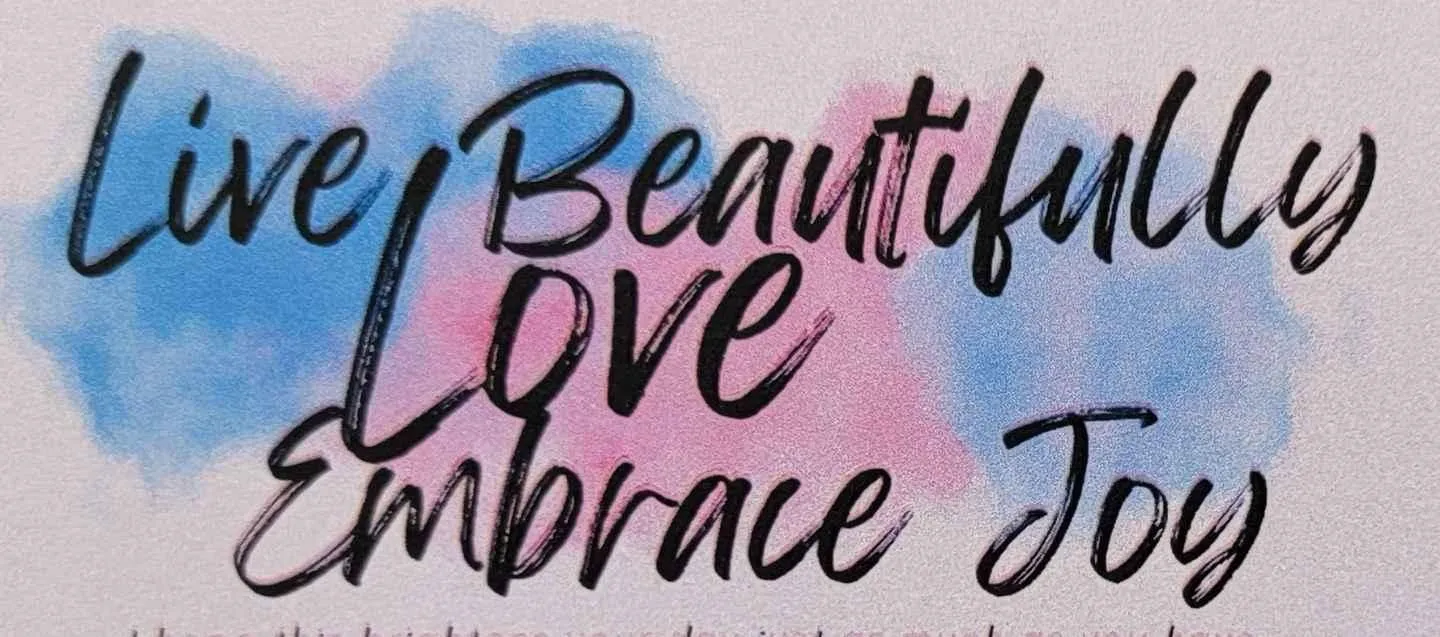 Live Beautifully
Love
Embrace Joy